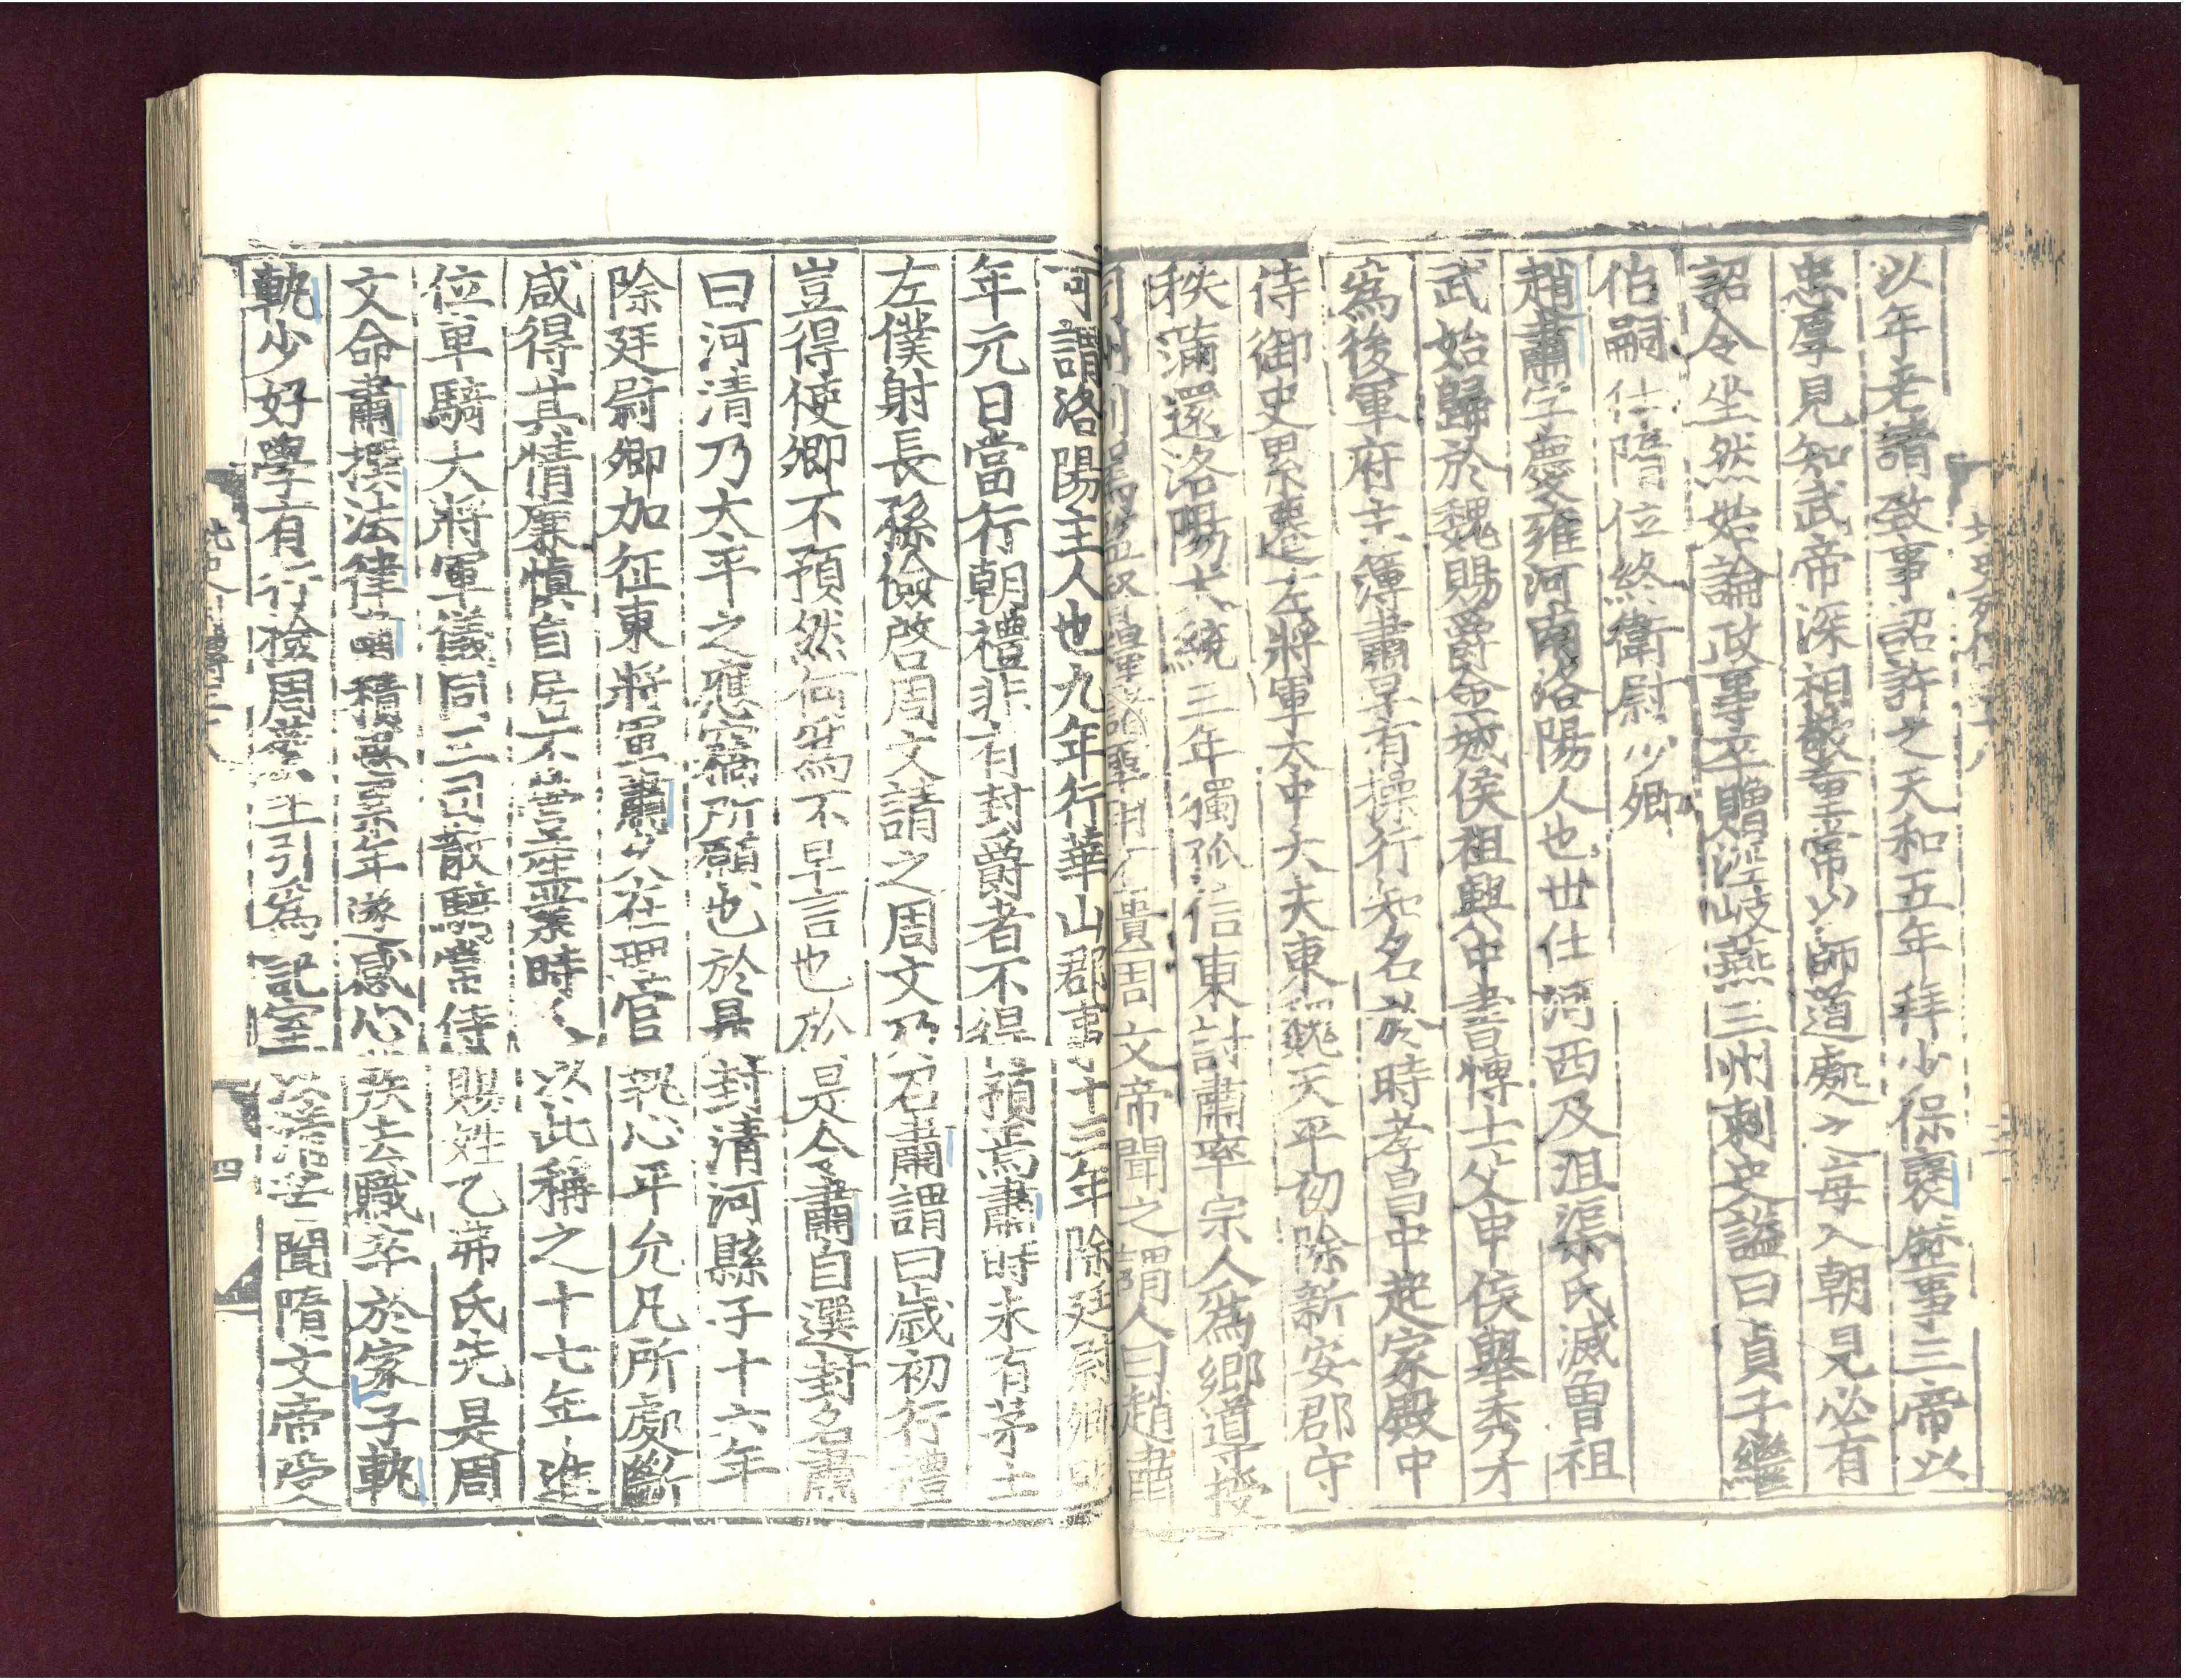 以年老請致事詔許之天和五年拜少保褒歷事三帝以
忠厚見知武帝深相敬重常以師道處之每入朝見必有
詔令坐然始論政事卒贈涇岐燕三州刺史謚曰貞子繼
伯嗣仕隋位終衛尉少卿
趙肅字慶雍河南洛陽人也世仕河西及沮渠氏滅曾祖
武始歸於魏賜爵金城侯祖興中書博士父申侯舉秀才
爲後軍府主簿肅早有操行知名於時孝昌中起家殿中
侍御史累遷左將軍太中大夫東魏天平初除新安郡守
秩滿還洛陽大統三年獨孤信東討肅率宗人爲鄉導授
司州別駕監督糧儲軍用不遺周文帝聞之謂人曰趙肅
可謂洛陽主人也九年行華山郡事十三年除廷尉卿明
年元日當行朝禮非有封爵者不得預焉肅時未有茅土
左僕射長孫儉啓周文請之周文乃召肅謂曰歲初行禮
豈得使卿不預然何爲不早言也於是令肅自選封名肅
曰河清乃太平之應竊所願也於是封清河縣子十六年
除廷尉卿加征東將軍肅久在理官執心平允凡所處斷
咸得其情廉慎自居不營產業時人以此稱之十七年進
位車騎大將軍儀同三司散騎常侍賜姓乙弗氏先是周
文命肅撰法律肅積思累年遂感心疾去職卒於家子軌
軌少好學有行檢周蔡王引爲記室以清苦聞隋文帝受
北史列傳五十八
三
四